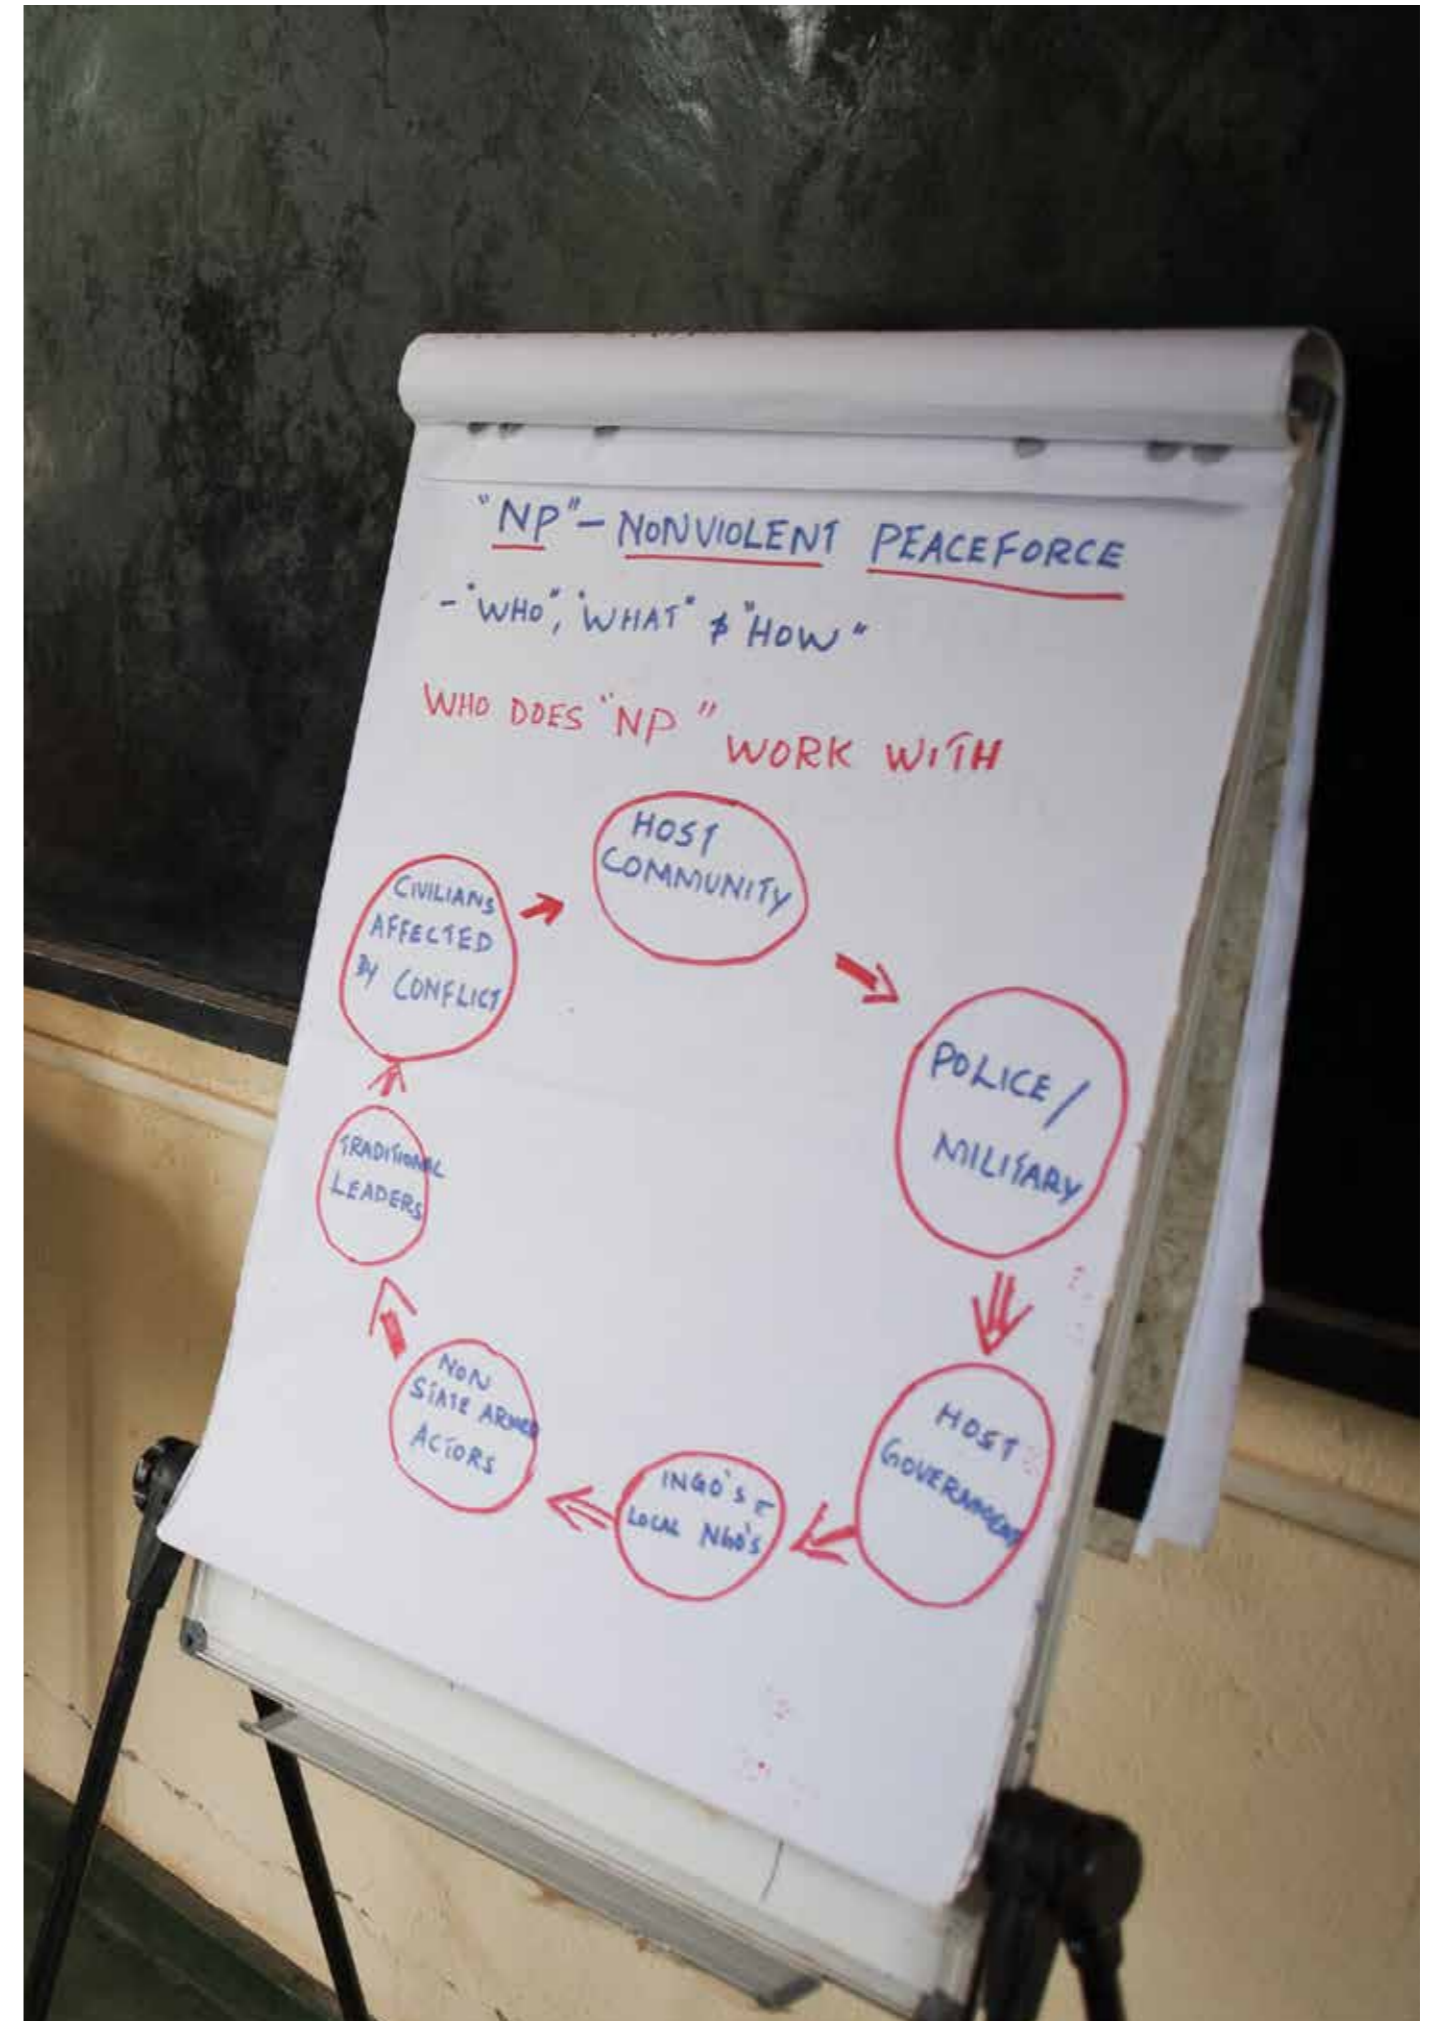 "NP" – NONVIOLENT PEACEFORCE
- "WHO", "WHAT" & "HOW"
WHO DOES "NP" WORK WITH
HOST
COMMUNITY
POLICE/
MILITARY
HOST
GOVERNMENT
INGO'S &
LOCAL NGO'S
NON
STATE ARMED
ACTORS
TRADITIONAL
LEADERS
CIVILIANS
AFFECTED
BY CONFLICT